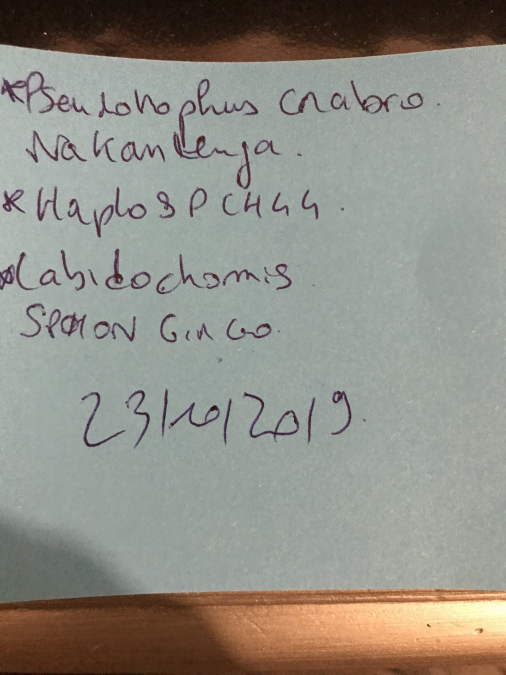 *Pseudotophus crabro.
Nakantenga.
*Haplo s P CH44.
*Labidochomis
SPCMON GinGo.
23/10/2019.